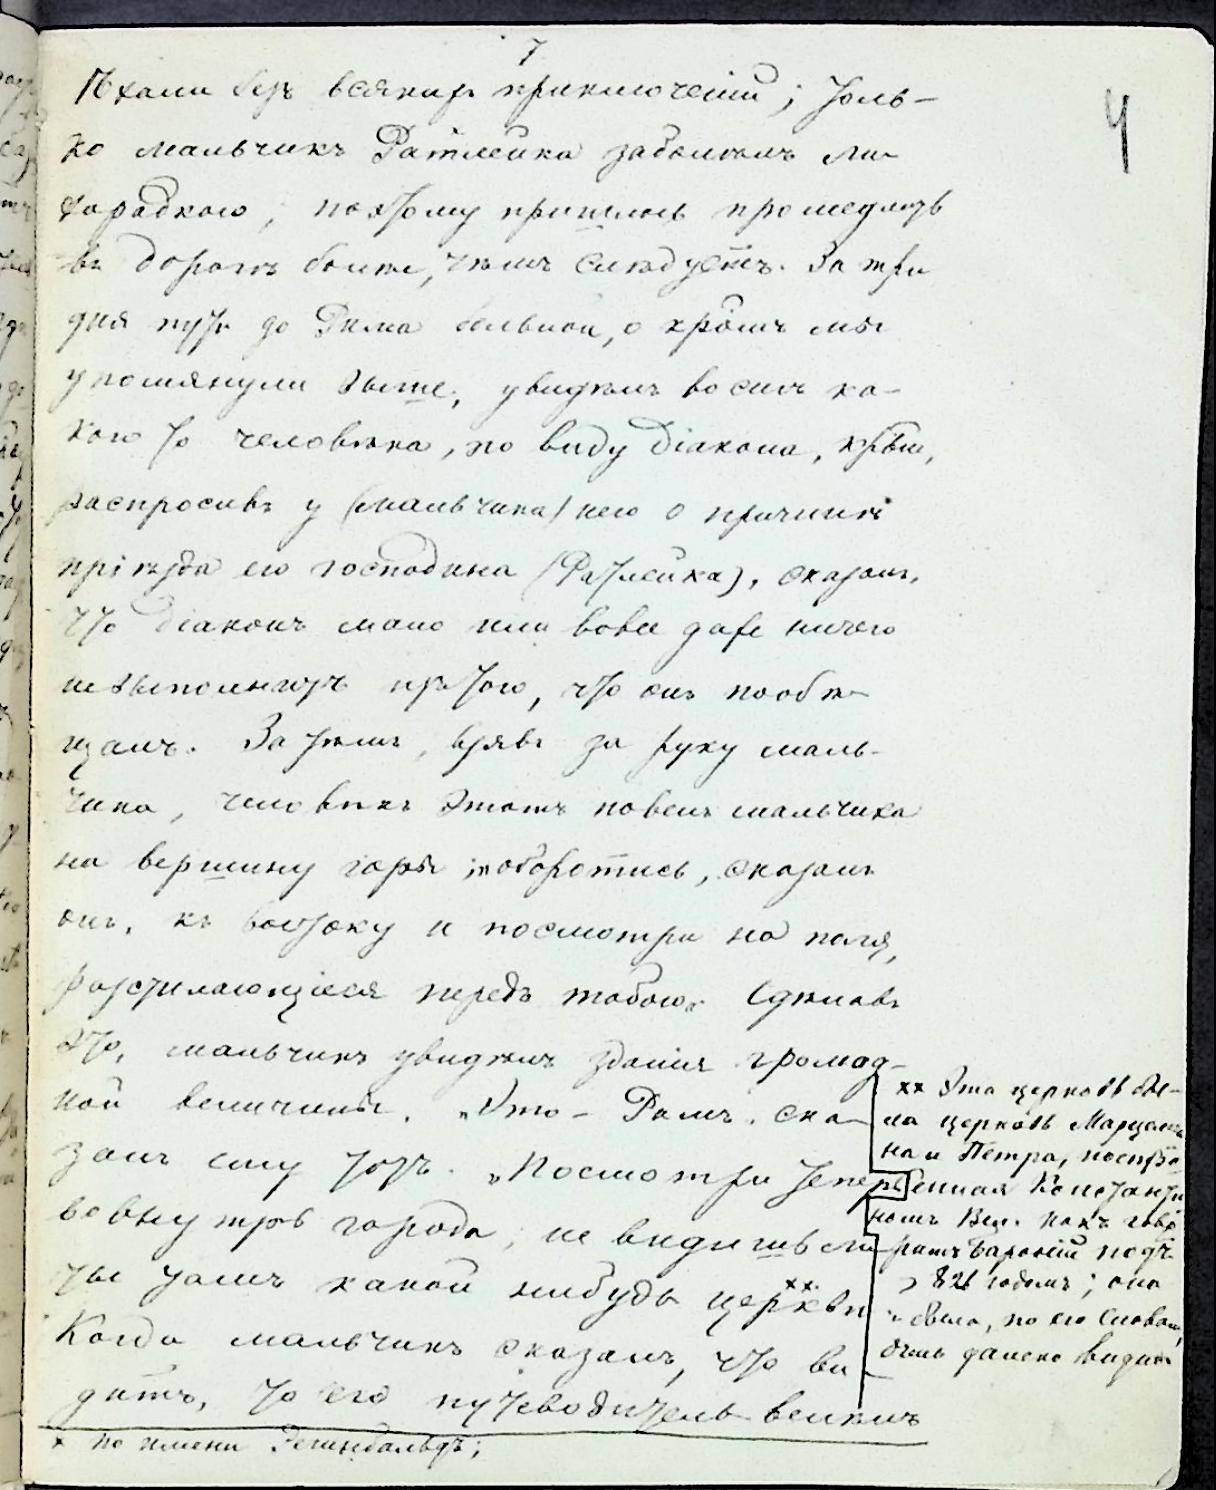 7
4
Ѣхали безъ всякихъ приключеній; толь-
ко мальчикъ Ратлейка заболѣлъ ли-
хорадкою, поэтому пришлось промедлить
въ дорогѣ болѣе, чѣмъ слѣдуетъ. За три
дня пути до Рима больной, о кромъ мы
упомянули выше, увидѣлъ во снѣ ка-
кого то человѣка, по виду діакона, крый,
распросивъ у (мальчика) него о причинѣ
пріѣзда его господина (Ратлейка), сказалъ,
что діаконъ мало или вовсе даже ничего
не выполнитъ изъ того, что онъ пообѣ-
щалъ. За тѣмъ, взявъ за руку маль-
чика, человѣкъ этотъ повелъ мальчика
на вершину горы; „оборотись, сказалъ
онъ, къ востоку и посмотри на поля,
растилающіеся передъ тобою". Сдѣлавъ
это, мальчикъ увидѣлъ зданія громад-
ной величины. „Это – Римъ", ска-
залъ ему тотъ. „Посмотри теперь
вовнутрь города; не видишь ли
ты тамъ какой нибудь церкви ××.
Когда мальчикъ сказалъ, что ви-
дитъ, то его путеводитель велитъ
× по имени Регинбальдъ;
×× Эта церковь бы-
ла церковь Марцелли-
на и Петра, постро-
енная Константи-
номъ Вел. какъ гово-
ритъ Бароній подъ
826 годомъ; она
была, по его словамъ,
очень далеко видна